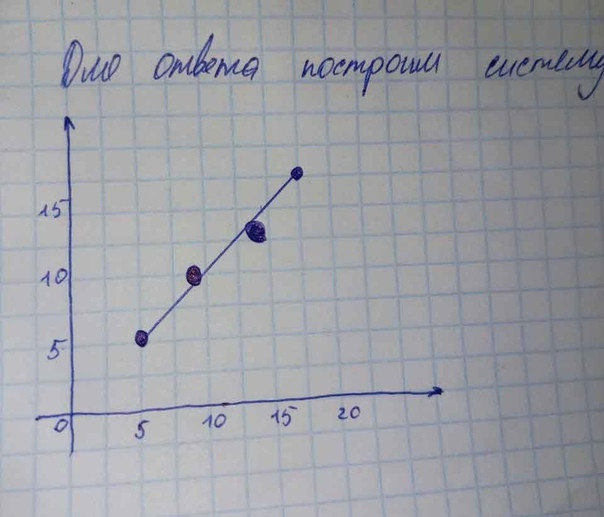 Для ответа построим систему
15
10
5
0 5 10 15 20